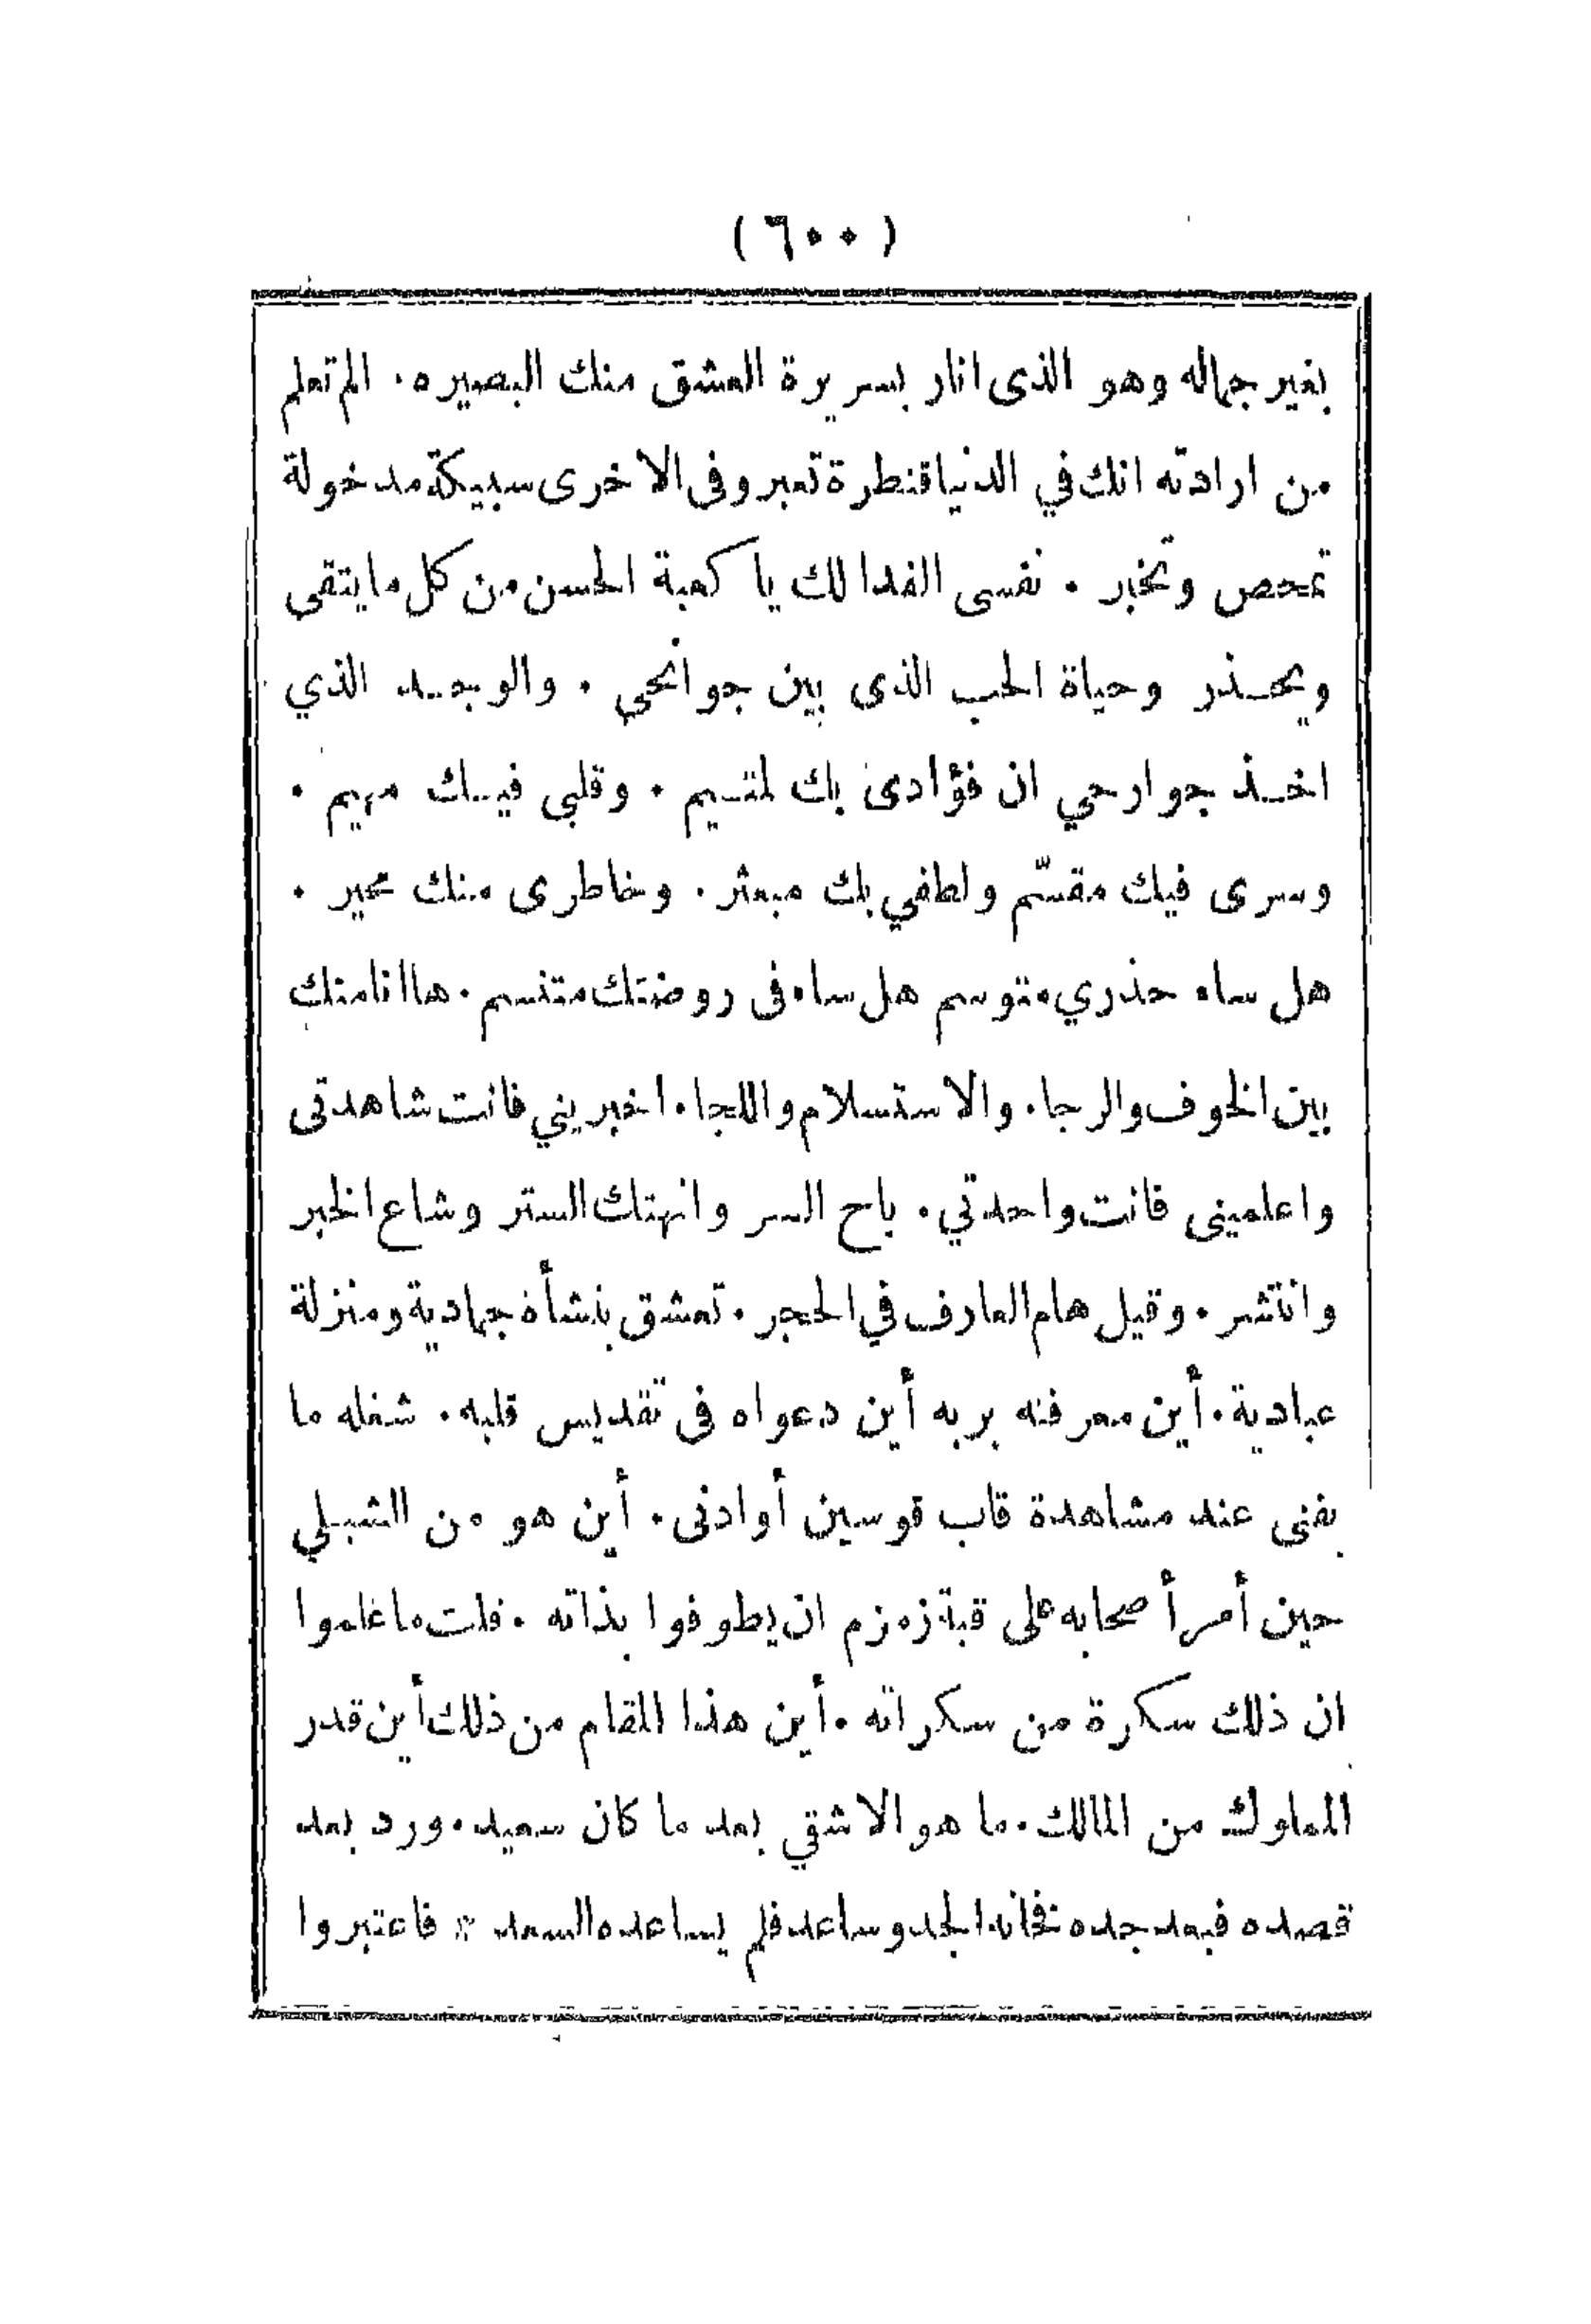 (٦٠٠)
بغير جماله وهو الذى انار بسريرة العشق منك البصيره. الم تعلم
من ارادته انك في الدنيا قنطرة تعبر وفى الاخرى سبيكة مدخولة
تمحص وتخبر. نفسى الفدا لك يا كعبة الحسن من كل ما يتقى
ويحـذر وحياة الحب الذى بين جوانحي. والوجـد الذي
اخـذ جوارحي ان فؤادى بك لمتـيم. وقلبى فيـك مهيم.
وسرى فيك مقسّم ولطفي بك مبعثر. وخاطرى منك محير.
هل ساه حذري متوسم هل ساه فى روضتك متنسم. ها انا منك
بين الخوف والرجا. والاستسلام واللجا. اخبريني فانت شاهدتى
واعلمينى فانت واحدتي. باح السر وانهتك الستر وشاع الخبر
وانتشر. وقيل هام العارف في الحجر. تعشق بنشأة جمادية ومنزلة
عبادية. أين معرفته بربه أين دعواه فى تقديس قلبه. شغله ما
يفنى عند مشاهدة قاب قوسين أوادنى. أين هو من الشبـلي
حين أمر أصحابه على قبة زمزم ان يطوفوا بذاته. فلت ما غلموا
ان ذلك سكرة من سكراته. أين هذا المقام من ذلك أين قدر
المملوك من المالك. ما هو الاشقي بعد ما كان سعيد. ورد بعد
قصده فبعد جده نخانه الجد وساعد فلم يساعده السعد * فاعتبروا